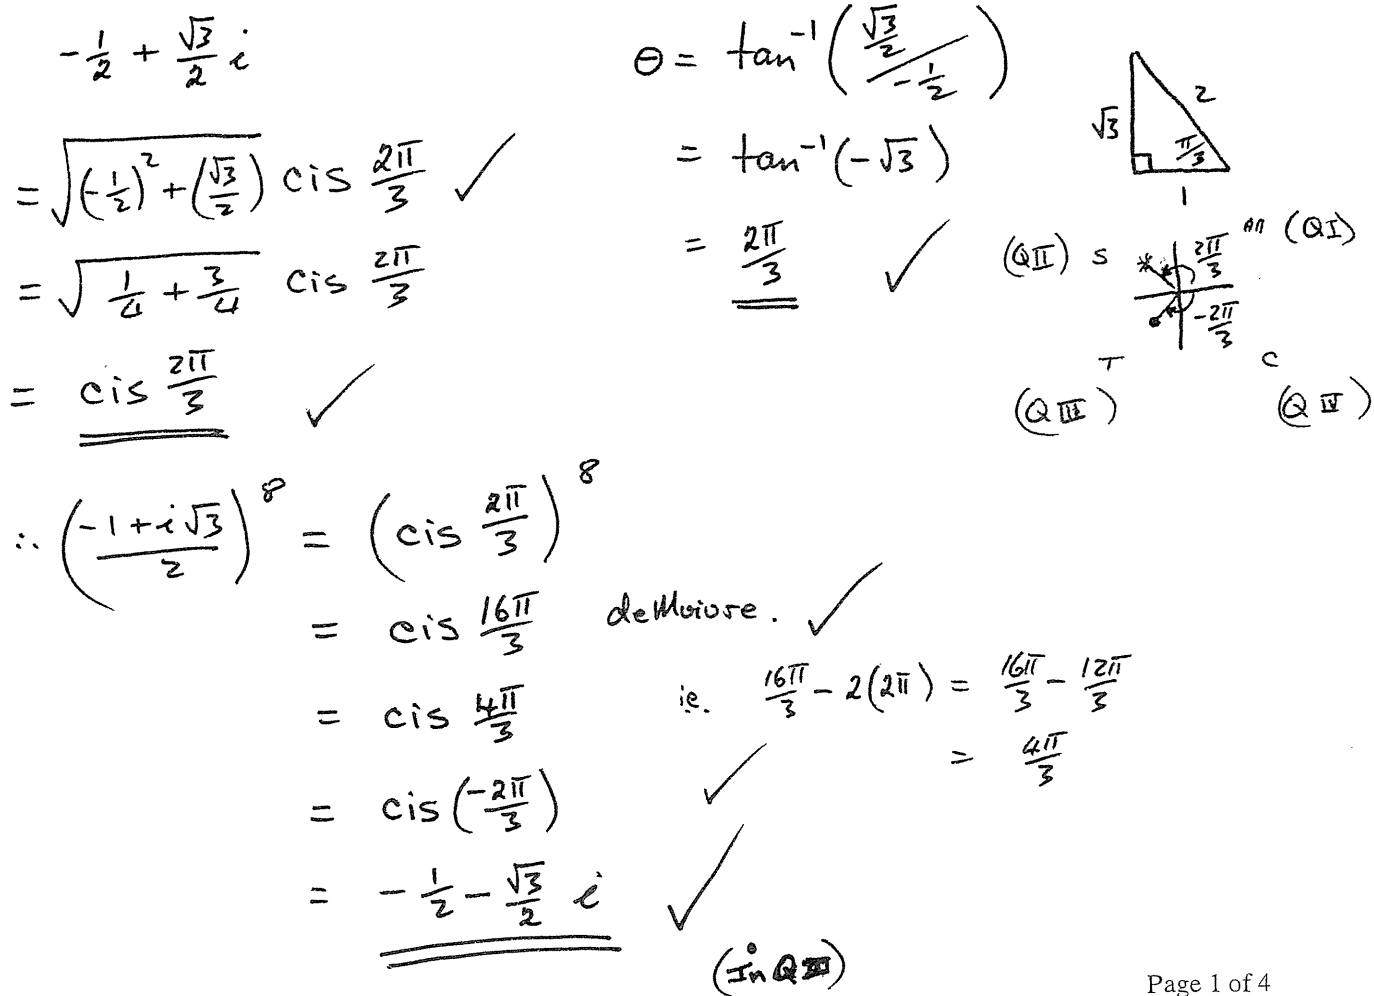 -1/2 + √3/2 i
= √((-1/2)² + (√3/2)) cis 2π/3 ✓
= √(1/4 + 3/4) cis 2π/3
= cis 2π/3 ✓
θ = tan⁻¹(√3/2 / -1/2)
= tan⁻¹(-√3)
= 2π/3 ✓
√3 2 π/3 1
(QII) S 2π/3 All (QI)
-2π/3
T C
(QIII) (QIV)
∴ ((-1 + i√3)/2)⁸ = (cis 2π/3)⁸
= cis 16π/3 deMoivre. ✓
= cis 4π/3 ie. 16π/3 - 2(2π) = 16π/3 - 12π/3
= 4π/3
= cis(-2π/3) ✓
= -1/2 - √3/2 i ✓
(In QIII)
Page 1 of 4